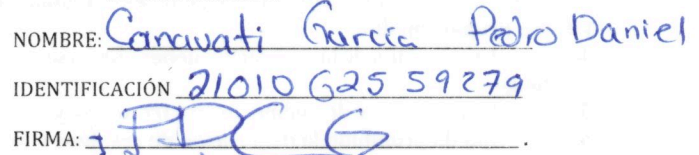 NOMBRE: Canavati García Pedro Daniel
IDENTIFICACIÓN 21010 G25 59279
FIRMA: PDC G.